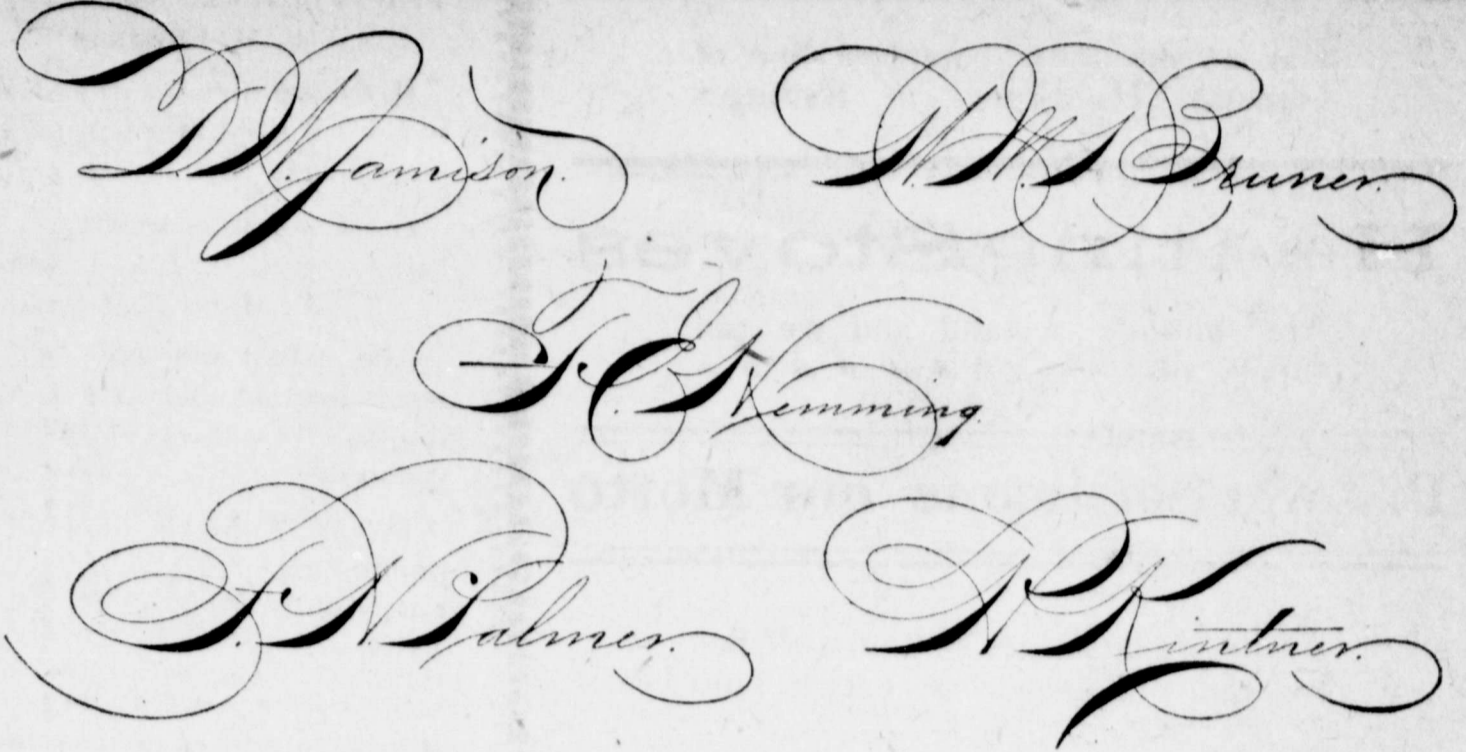 D. W. Jamison.
W. M. S. Bruner.
F. C. Hemming.
F. N. Palmer.
Kintner.